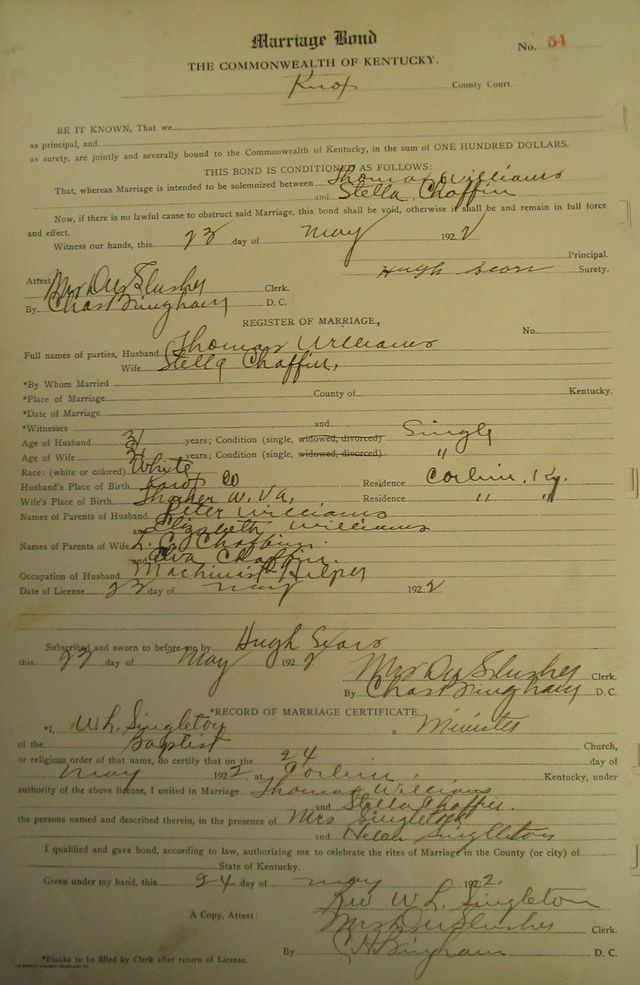 Marriage Bond
No. 54
THE COMMONWEALTH OF KENTUCKY.
Knox County Court.
BE IT KNOWN, That we
as principal, and
as surety, are jointly and severally bound to the Commonwealth of Kentucky, in the sum of ONE HUNDRED DOLLARS.
THIS BOND IS CONDITIONED AS FOLLOWS:
That, whereas Marriage is intended to be solemnized between Thomas Williams
and Stella Chaffin
Now, if there is no lawful cause to obstruct said Marriage, this bond shall be void, otherwise it shall be and remain in full force
and effect.
Witness our hands, this 23 day of May 1922
Principal.
Hugh Surety.
Attest Mrs D W Slusher Clerk.
By Chas Bingham D. C.
REGISTER OF MARRIAGE.
No.
Full names of parties, Husband Thomas Williams
Wife Stella Chaffin,
*By Whom Married
*Place of Marriage County of Kentucky.
*Date of Marriage
*Witnesses and
Age of Husband years; Condition (single, widowed, divorced) Single
Age of Wife years; Condition (single, widowed, divorced) "
Race: (white or colored) White
Husband's Place of Birth Knox Co Residence Corbin, Ky.
Wife's Place of Birth W. Va, Residence " "
Names of Parents of Husband Peter Williams
and Elizabeth Williams
Names of Parents of Wife L. C. Chaffin
and Elva Chaffin.
Occupation of Husband Machinist Helper
Date of License 23 day of May 1922
Subscribed and sworn to before me by Hugh
this 23 day of May 1922
Mrs D W Slusher Clerk.
By Chas Bingham D. C.
*RECORD OF MARRIAGE CERTIFICATE
*I, W. L. Singleton a Minister
of the Baptist Church,
or religious order of that name, do certify that on the 24 day of
May 1922 at Corbin, Kentucky, under
authority of the above license, I united in Marriage Thomas Williams
and Stella Chaffin.
the persons named and described therein, in the presence of Mrs Singleton
and Helen Singleton
I qualified and gave bond, according to law, authorizing me to celebrate the rites of Marriage in the County (or city) of
State of Kentucky.
Given under my hand, this 24 day of May 1922.
Rev W. L. Singleton
A Copy, Attest: Mrs D W Slusher Clerk.
By C H Bingham D. C.
*Blanks to be filled by Clerk after return of License.